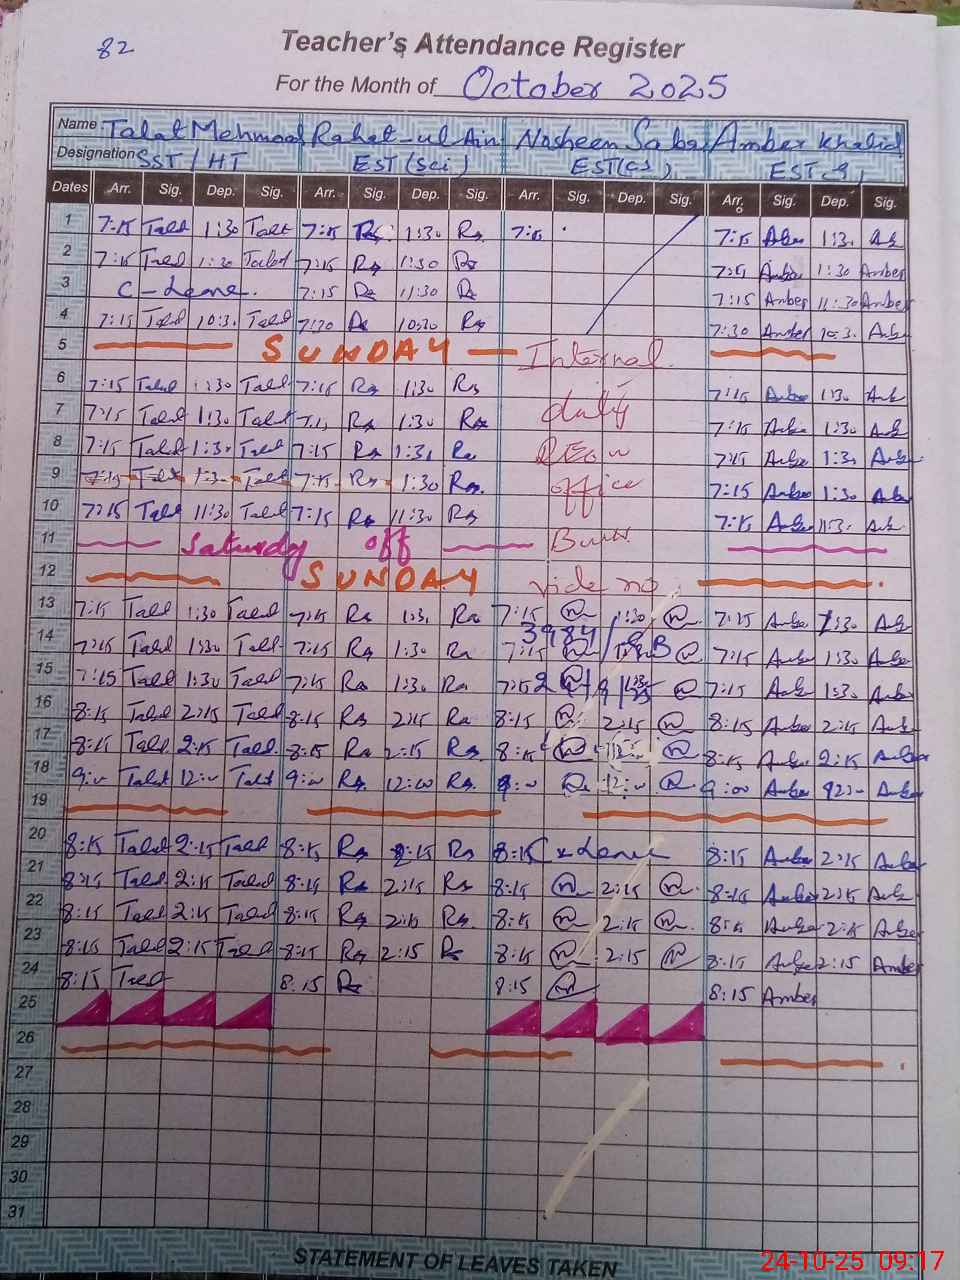 82
Teacher's Attendance Register
For the Month of October 2025
Name Talat Mehmood Rahat-ul Ain Nosheen Saba Amber Khalid
Designation SST/HT EST(sci) EST(cs) EST
Dates Arr. Sig. Dep. Sig. Arr. Sig. Dep. Sig. Arr. Sig. Dep. Sig. Arr. Sig. Dep. Sig.
1 7:15 Talt 1:30 Talt 7:15 Rs 1:30 Rs 7:15 7:15 Amber 1:30 Amb
2 7:15 Talt 1:30 Talt 7:15 Rs 1:30 Rs 7:15 Amber 1:30 Amber
3 C-Leave. 7:15 Rs 11:30 Rs 7:15 Amber 11:30 Amber
4 7:15 Talt 10:30 Talt 7:30 Rs 10:30 Rs 7:30 Amber 10:30 Amb
5 SUNDAY Internal
6 7:15 Talt 1:30 Talt 7:15 Rs 1:30 Rs 7:15 Amber 1:30 Amb
7 7:15 Talt 1:30 Talt 7:15 Rs 1:30 Rs duty 7:15 Amber 1:30 Amb
8 7:15 Talt 1:30 Talt 7:15 Rs 1:30 Rs 7:15 Amber 1:30 Amb
9 7:15 Talt 1:30 Talt 7:15 Rs 1:30 Rs office 7:15 Amber 1:30 Amb
10 7:15 Talt 11:30 Talt 7:15 Rs 11:30 Rs 7:15 Amber 11:30 Amb
11 Saturday off
12 SUNDAY vide no.
13 7:15 Talt 1:30 Talt 7:15 Rs 1:30 Rs 7:15 1:30 7:15 Amber 1:30 Amb
3984
14 7:15 Talt 1:30 Talt 7:15 Rs 1:30 Rs 7:15 7:15 Amber 1:30 Amb
15 7:15 Talt 1:30 Talt 7:15 Rs 1:30 Rs 7:15 Amber 1:30 Amb
16 8:15 Talt 2:15 Talt 8:15 Rs 2:15 Rs 8:15 2:15 8:15 Amber 2:15 Amb
17 8:15 Talt 2:15 Talt 8:15 Rs 2:15 Rs 8:15 8:15 Amber 2:15 Amber
18 9:00 Talt 12:00 Talt 9:00 Rs 12:00 Rs 9:00 12:00 9:00 Amber Amber
19
20 8:15 Talt 2:15 Talt 8:15 Rs 2:15 Rs 8:15 C Leave 8:15 Amber 2:15 Amber
21 8:15 Talt 2:15 Talt 8:15 Rs 2:15 Rs 8:15 2:15 8:15 Amber 2:15 Amb
22 8:15 Talt 2:15 Talt 8:15 Rs 2:15 Rs 8:15 2:15 8:15 Amber 2:15 Amb
23 8:15 Talt 2:15 Talt 8:15 Rs 2:15 Rs 8:15 2:15 8:15 Amber 2:15 Amber
24 8:15 Talt 8:15 Rs 8:15 8:15 Amber
25
26
27
28
29
30
31
STATEMENT OF LEAVES TAKEN
24-10-25 09:17